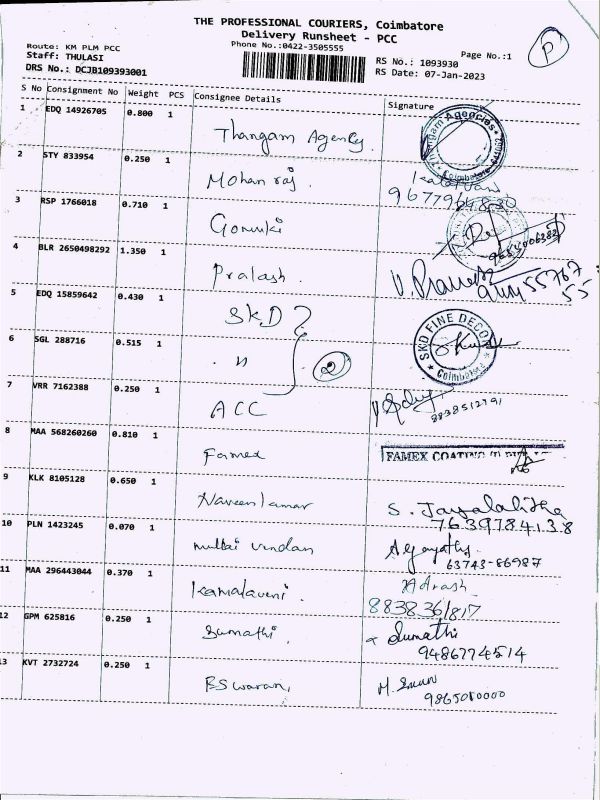 THE PROFESSIONAL COURIERS, Coimbatore
Delivery Runsheet - PCC
Phone No.:0422-3505555
Page No.:1
P
Route: KM PLM PCC
Staff: THULASI
DRS No.: DCJB109393001
RS No.: 1093930
RS Date: 07-Jan-2023
S No Consignment No Weight PCS Consignee Details Signature
1 EDQ 14926705 0.800 1 Thangam Agency. Thangam Agencies Coimbatore
2 STY 833954 0.250 1 Mohan raj.
3 RSP 1766018 0.710 1
4 BLR 2650498292 1.350 1
5 EDQ 15859642 0.430 1 SKD SKD FINE DECOR Coimbatore
6 SGL 288716 0.515 1 " 2
7 VRR 7162388 0.250 1 ACC
8838512791
8 MAA 568260260 0.810 1 Famex FAMEX COATING
9 KLK 8105128 0.650 1 Naveen kumar S. Jayalalitha
7639784138
10 PLN 1423245 0.070 1
63743-86987
11 MAA 296443044 0.370 1 Kamalaveni. Adrash
12 GPM 625816 0.250 1 Sumathi. Sumathi
9486774514
13 KVT 2732724 0.250 1